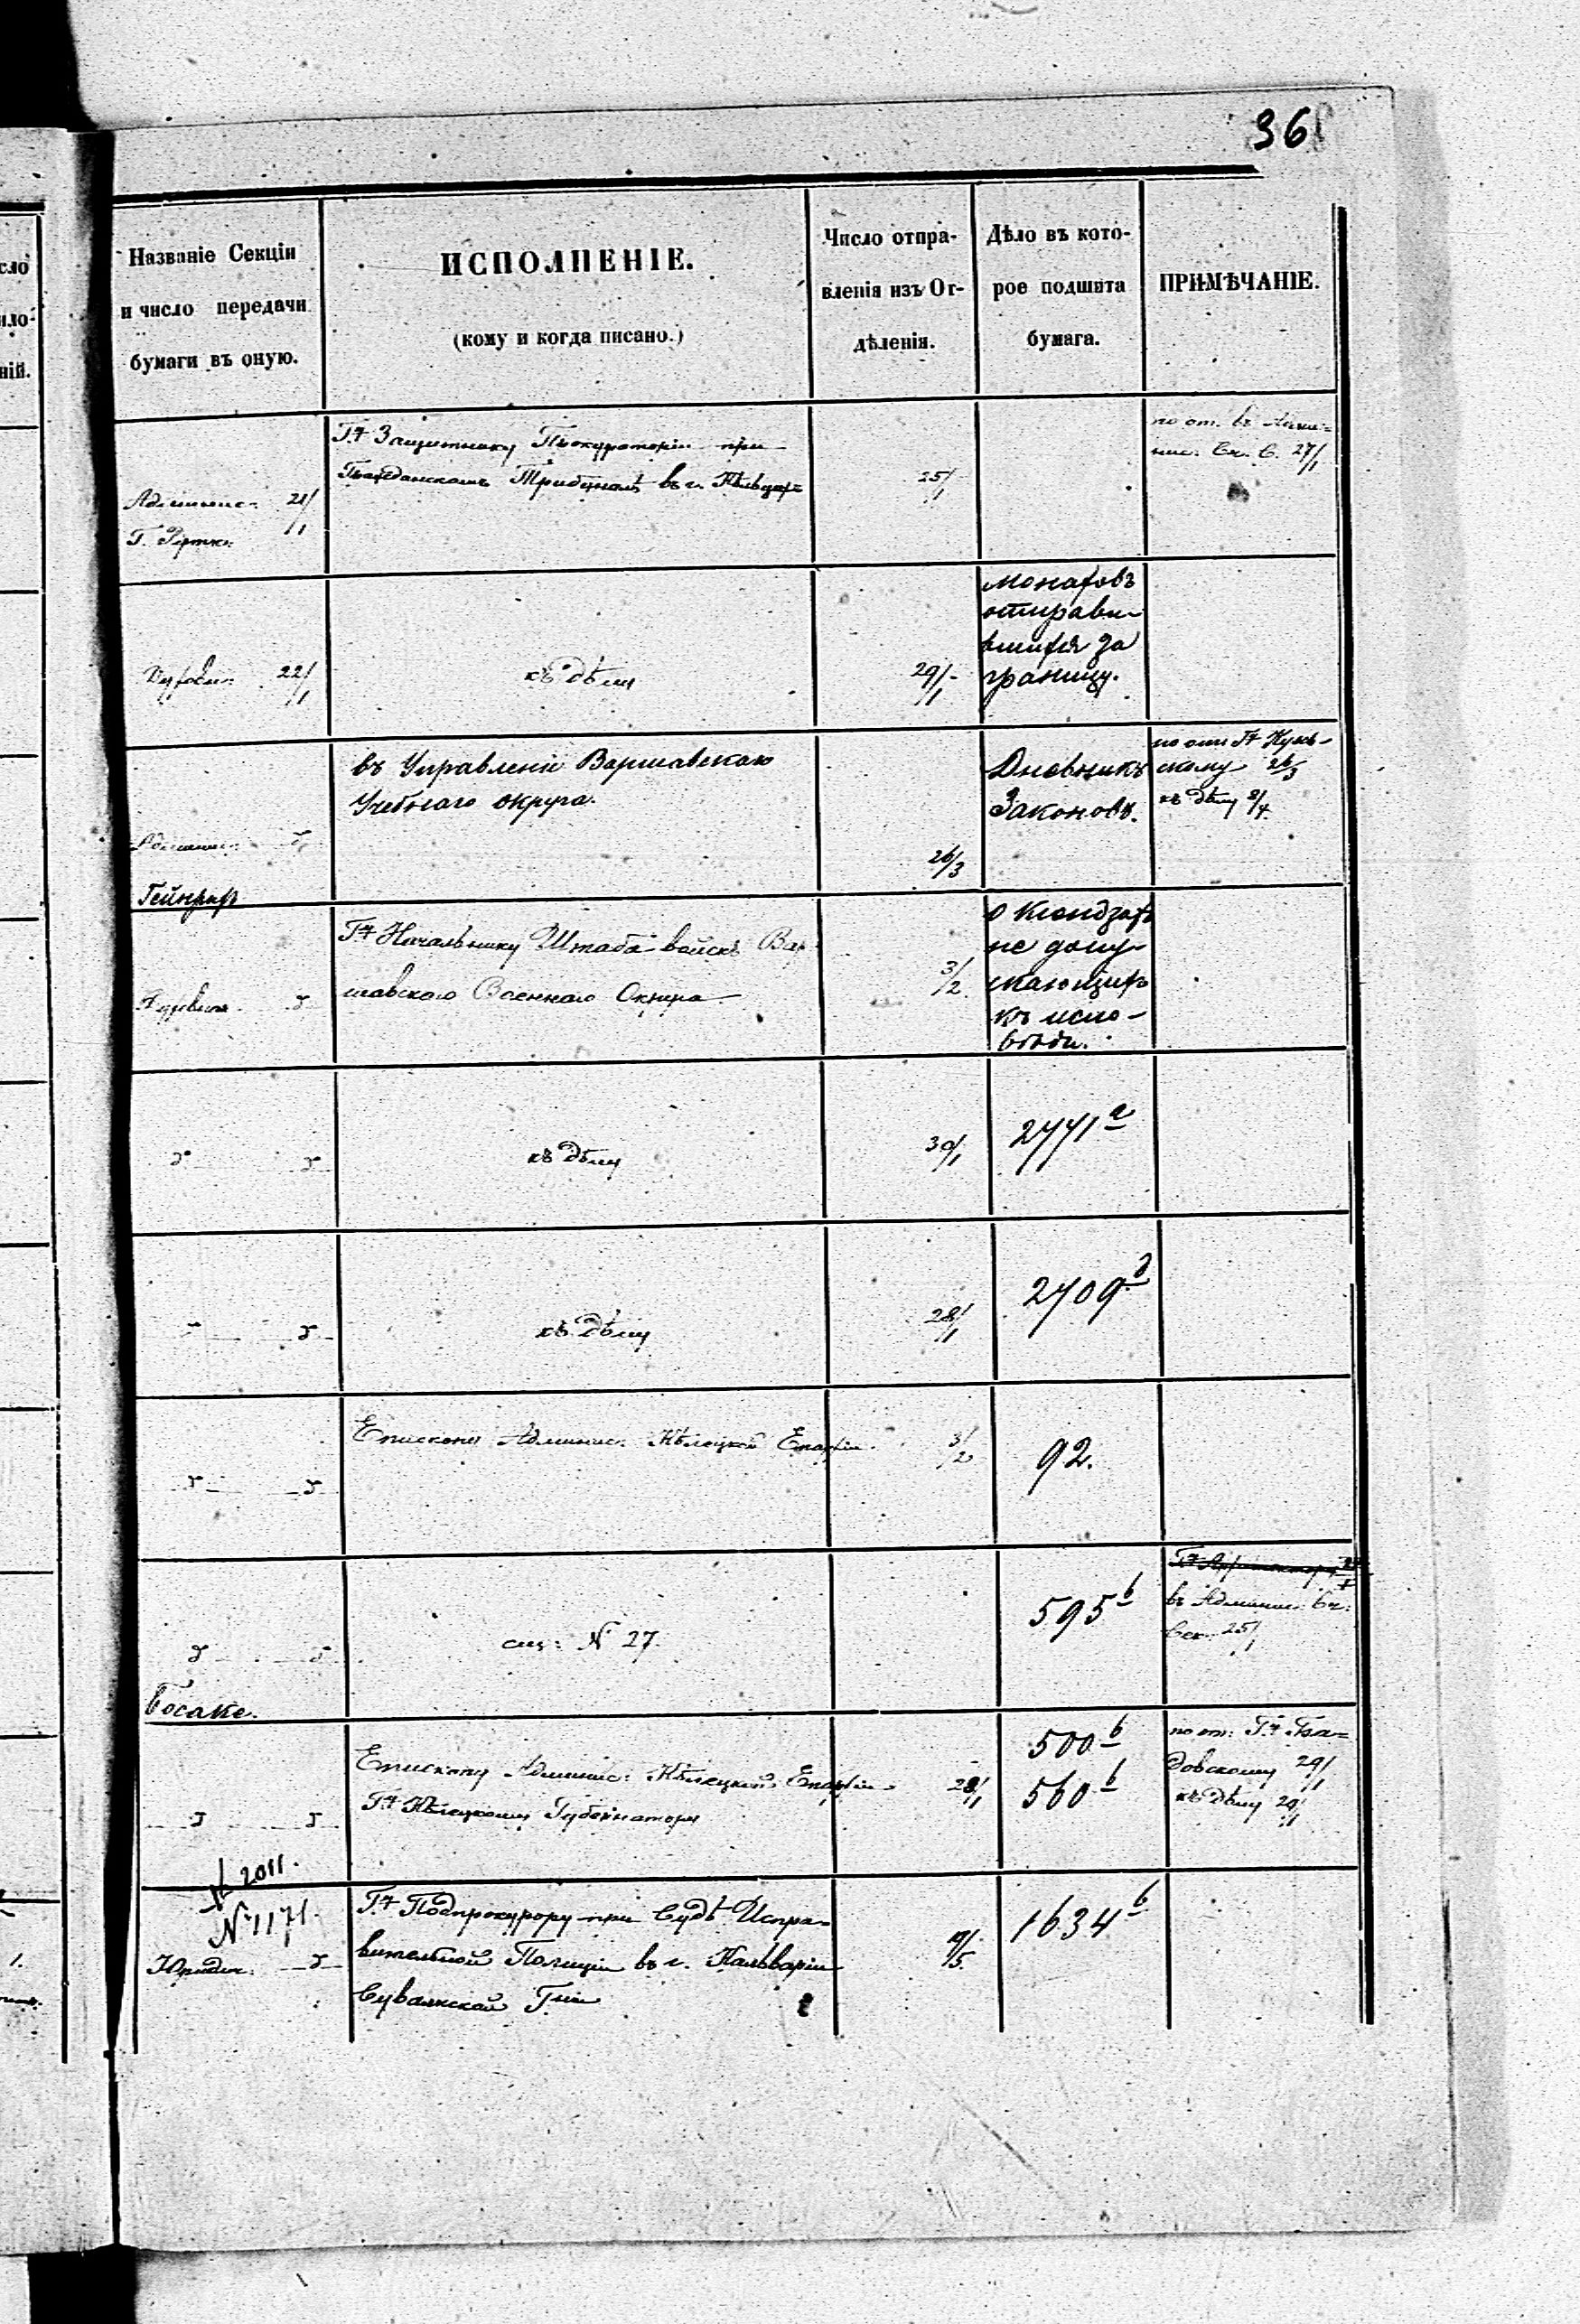 36
Названіе Секціи
и число передачи
бумаги въ оную.
ИСПОЛНЕНІЕ.
(кому и когда писано.)
Число отпра-
вленія изъ От-
дѣленія.
Дѣло въ кото-
рое подшита
бумага.
ПРИМѢЧАНІЕ.
Админис: 21/1
Г.
Гну Защитнику Прокураторіи при
Гражданскомъ Трибуналѣ въ г.
25/1
по от. въ
27/1
Духовн: 22/1
къ дѣлу
29/1
Монаховъ
отправи-
вшихся за
границу.
Админис: д
Гейнрих
въ Управленіе Варшавскаго
Учебнаго округа.
26/3
Дневникъ
Законовъ.
по отп Гну
скому 26/3
къ дѣлу 8/4
Духовн д
Гну Начальнику Штаба войскъ Вар-
шавскаго Военнаго Округа
3/2
о Ксендзахъ
не допу-
скающихъ
къ испо-
вѣди.
д д
къ дѣлу
30/1
2771 а
д
къ дѣлу
28/1
2709 д
д д
Епископу Админис: Кѣлецкой Епархіи.
3/2
92.
д д
Босаке.
сиц: N 27.
595 б
въ Админис: Сч:
Сек. 25/1
д д
Епископу Админис: Кѣлецкой Епархіи
Гну Кѣлецкому Губернатору
28/1
500 б
560 б
по от: Гну
довскому 29/1
къ дѣлу 29/1
№ 2011.
№ 1171.
Юридич: д
Гну Подпрокурору при Судѣ Испра-
вительной Полиціи въ г. Кальваріи
Сувалкской Гніи
19/5.
1634 б